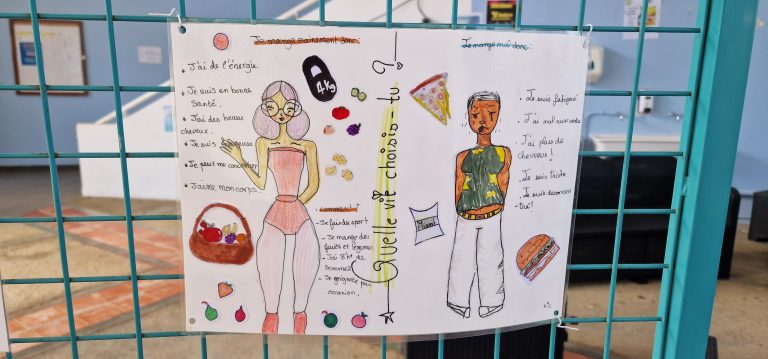 Je mange sainement donc:
• J'ai de l'énergie
• Je suis en bonne
Santé.
• J'ai des beaux
cheveux.
• Je suis
• Je peut me concentrer
• J'aime mon corps
4Kg
comment ?
- Je fais du sport
- Je mange des
fruits et légumes
- J'ai 8h de
sommeil
- Je grignote pas
occasion.
Quelle vie choisis-tu ?
Je mange mal donc:
. Je suis fatigué
. J'ai mal au ventre
. J'ai plus de
cheveux !
. Je suis triste
. Je suis deconcen
-tré !